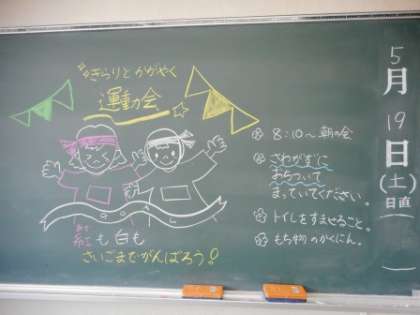 きらりとかがやく
運動会
8:10～ 朝の会
さわがずに
おちついて
まっていてください。
トイレをすませること。
もち物のかくにん。
あか
紅も白も
さいごまでがんばろう!
5
月
19
日
(土)
日直